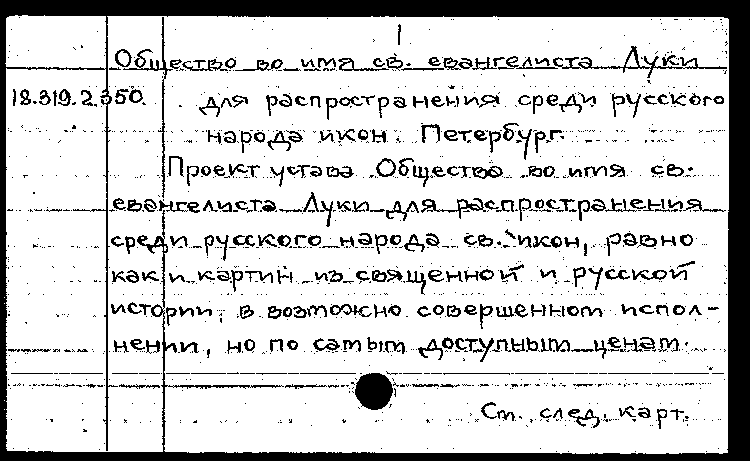 1
Общество во имя св. евангелиста Луки
18.319.2.350. для распространения среди русского
народа икон. Петербург.
Проект устава Общества во имя св.
евангелиста Луки для распространения
среди русского народа св. икон, равно
как и картин из священной и русской
истории, в возможно совершенном испол-
нении, но по самым доступным ценам.
См. след. карт.